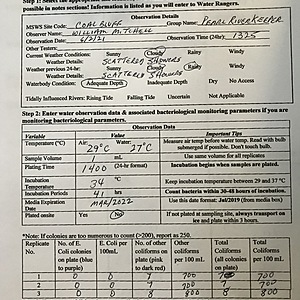 possible in notes section! Information is listed as you will enter to Water Rangers.
Observation Details
MSWS Site Code: COAL BLUFF Group Name: PEARL RIVERKEEPER
Observer Name: WILLIAM MITCHELL
Observation Date: 6/2/21 Observation Time (24hr): 1325
Other Testers:
Current Weather Conditions: Sunny Cloudy Rainy Windy
Weather Details: SCATTERED SHOWERS
Weather previous 24-hr: Sunny Cloudy Rainy Windy
Weather Details: SCATTERED SHOWERS
Waterbody Condition: Adequate Depth Inadequate Depth Dry No Access
Tidally Influenced Rivers: Rising Tide Falling Tide Uncertain Not Applicable
Step 2: Enter water observation data & associated bacteriological monitoring parameters if you are
monitoring bacteriological parameters.
Observation Data
Variable Value Important Tips
Temperature (°C) Air: 29°C Water: 27°C Measure air temp before water temp. Read with bulb
submerged if possible. Don't touch bulb.
Sample Volume 1 mL Use same volume for all replicates
Plating Time 1400 (24-hr format) Incubation begins when samples are plated.
Incubation Temperature 34 °C Keep incubation temperature between 29 and 37 °C
Incubation Periods 41 hrs Count bacteria within 30-48 hours of incubation.
Media Expiration Date MAR/2022 Use this date format: Jul/2019 (from media box)
Plated onsite Yes No If not plated at sampling site, always transport on
ice and plate within 3 hours.
*Note: If colonies are too numerous to count (>200), report as 250.
Replicate No. No. of E. Coli colonies on plate (blue to purple) E. Coli per 100mL No. of other coliforms on plate (pink to dark red) Other Coliforms per 100 mL Total Coliforms (all colonies on plate) Total Coliforms per 100 mL
1 0 0 7 700 700
2 0 0 7 700 7 700
3 0 0 8 800 8 800